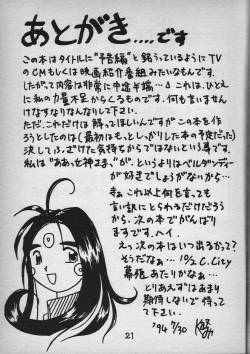 あとがき....です
この本はタイトルに"予告編"と銘うっているようにTV
のCMもしくは映画紹介番組みたいなもんです。
したがって内容は非常に中途半端…。これは、ひとえ
に私の力量不足からくるものです。何も言いません
けなすなりなんなりして下さい。
ただ、これだけは解ってほしいんですがこの本を作
ろうとしたのは(最初はもっとしっかりした本の予定だった)
決して、ふざけた気持ちからではないという事です。
私は"ああっ女神さまっ"が、というよりはベルダンディーが
好きでしょうがないから…
まぁこれ以上何を言っても
言い訳にとられるだけだろう
から、次の本でがんばり
ますです。ヘイ。
えっ次の本はいつ出るかって?
そうだなぁ… 10/2 C.City
幕張あたりかなぁ…
とりあえずはあまり
期待しないで待って
て下さい。
'94 7/30
21